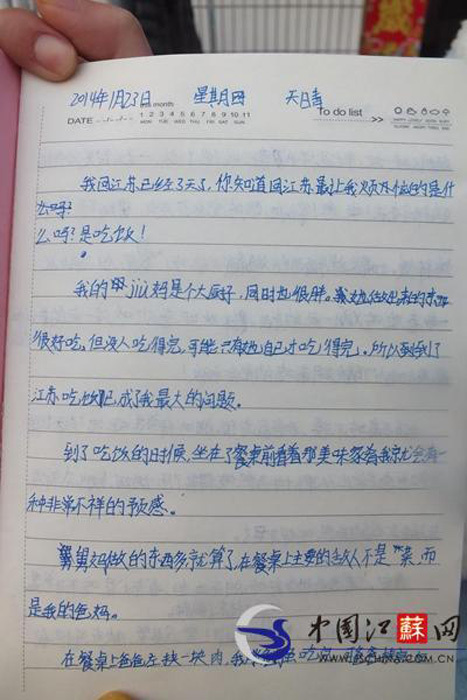 2014年1月23日 month 星期四 天晴
DATE 1 2 3 4 5 6 7 8 9 10 11 To do list >>
MON TUE WED THU FRI SAT SUN
我回江苏已经3天了,你知道回江苏最让我烦人的是什
么吗?
么吗?是吃饭!
我的jiù妈是个大厨子,同时也很胖。她做出来的东西
很好吃,但没人吃得完,可能只有她自己才吃得完。所以到了
江苏吃饭已成了我最大的问题。
到了吃饭的时候,坐在了餐桌前看着那美味家肴我就会有一
种非常不祥的预感。
舅舅妈做的东西多就算了,在餐桌上主要的敌人不是“菜,而
是我的爸妈。
在餐桌上爸爸左挟一块肉,我
中国江蘇网